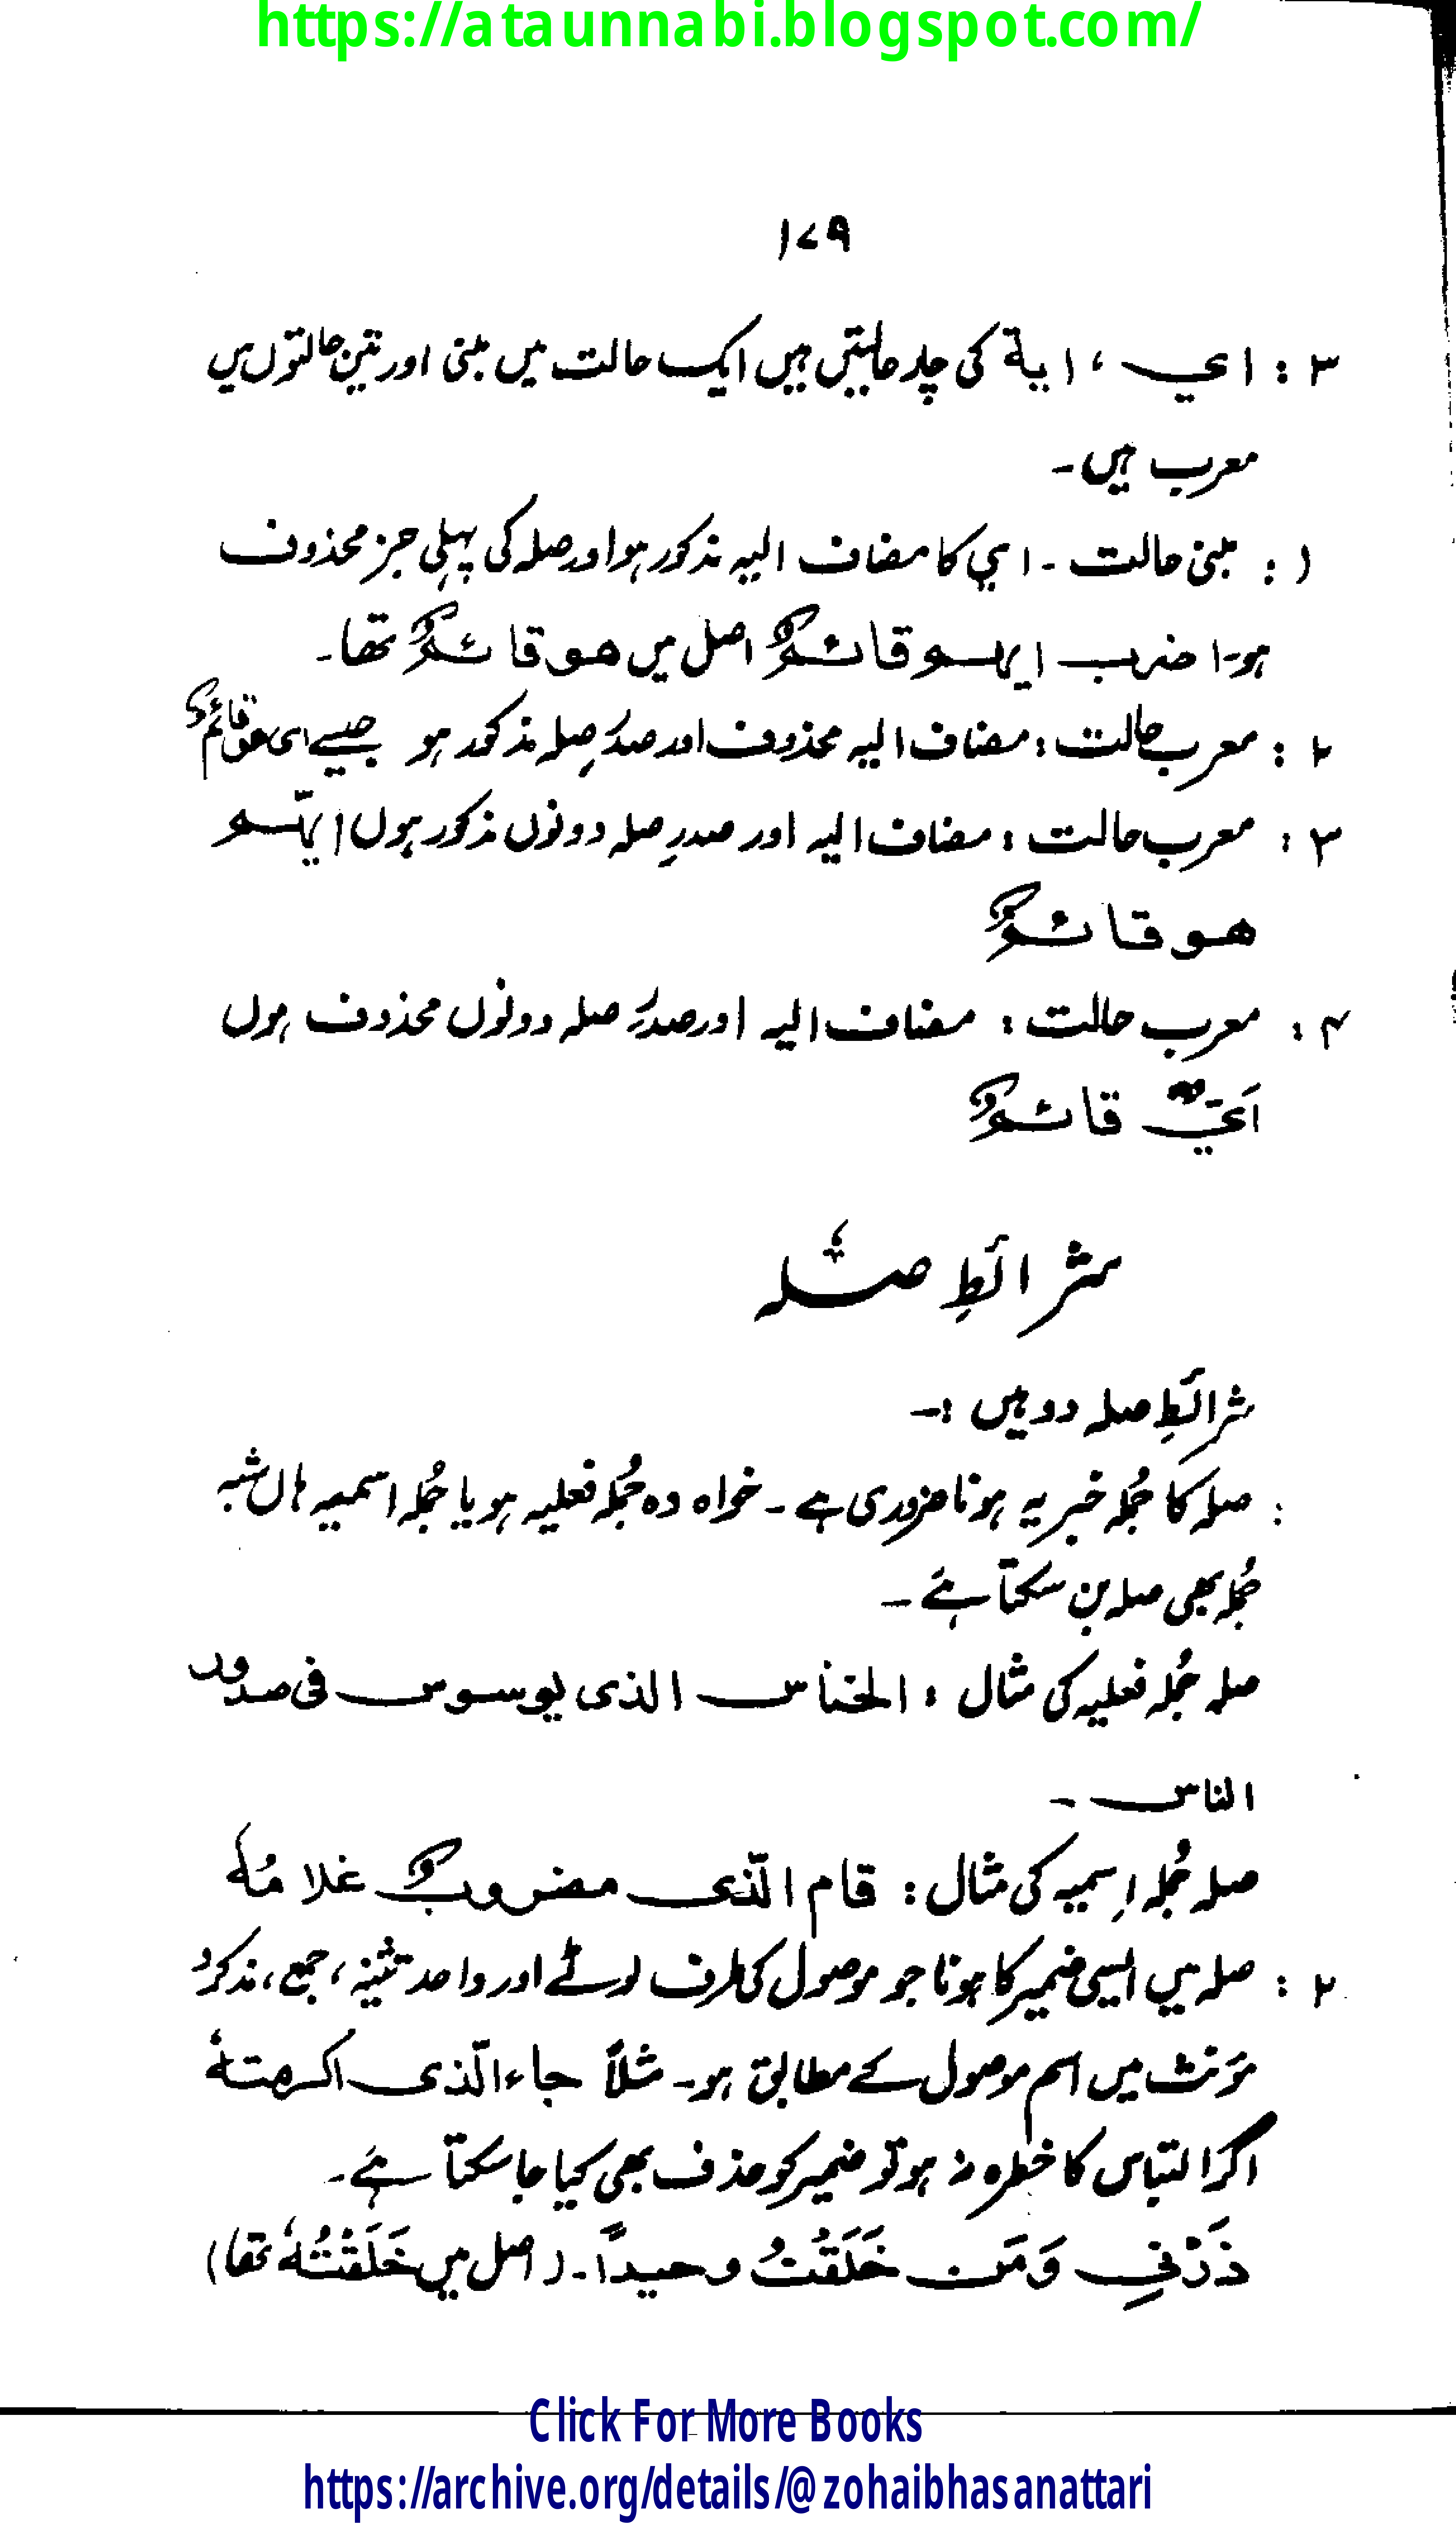 https://ataunnabi.blogspot.com/
۱۷۹
۳ : ای ، ایة کی چار حالتیں ہیں ایک حالت میں مبنی اور تین حالتوں میں
معرب ہیں۔
۱ : مبنی حالت ۔ ای کا مضاف الیہ مذکور ہو اور صلہ کی پہلی جز محذوف
ہو۔ا ضرب ایھم قائمٌ اصل میں ھو قائمٌ تھا۔
۲ : معرب حالت : مضاف الیہ محذوف اور صدرِ صلہ مذکور ہو جیسے ای ھو قائمٌ
۳ : معرب حالت : مضاف الیہ اور صدرِ صلہ دونوں مذکور ہوں ایّھم
ھو قائمٌ
۴ : معرب حالت : مضاف الیہ اور صدرِ صلہ دونوں محذوف ہوں
اَیٌّ قائمٌ
شرائطِ صلہ
شرائطِ صلہ دو ہیں :۔
: صلہ کا جُملہ خبریہ ہونا ضروری ہے ۔ خواہ وہ جُملہ فعلیہ ہو یا جُملہ اسمیہ ہاں شبہ
جُملہ بھی صلہ بن سکتا ہے ۔
صلہ جُملہ فعلیہ کی مثال : الخناس الذی یوسوس فی صدور
الناس ۔
صلہ جُملہ اِسمیہ کی مثال : قام الّذی مضروبٌ غلامُہٗ
۲ : صلہ میں ایسی ضمیر کا ہونا جو موصول کی طرف لوٹے اور واحد تثنیہ ، جمع ، مذکر و
مؤنث میں اسم موصول کے مطابق ہو۔ مثلاً جاء الّذی اکرمتہٗ
اگر التباس کا خطرہ نہ ہو تو ضمیر کو حذف بھی کیا جا سکتا ہے ۔
ذَرْنِی وَمَن خَلَقْتُ وحیداً ۔ ( اصل میں خَلَقْتُہٗ تھا )
Click For More Books
https://archive.org/details/@zohaibhasanattari